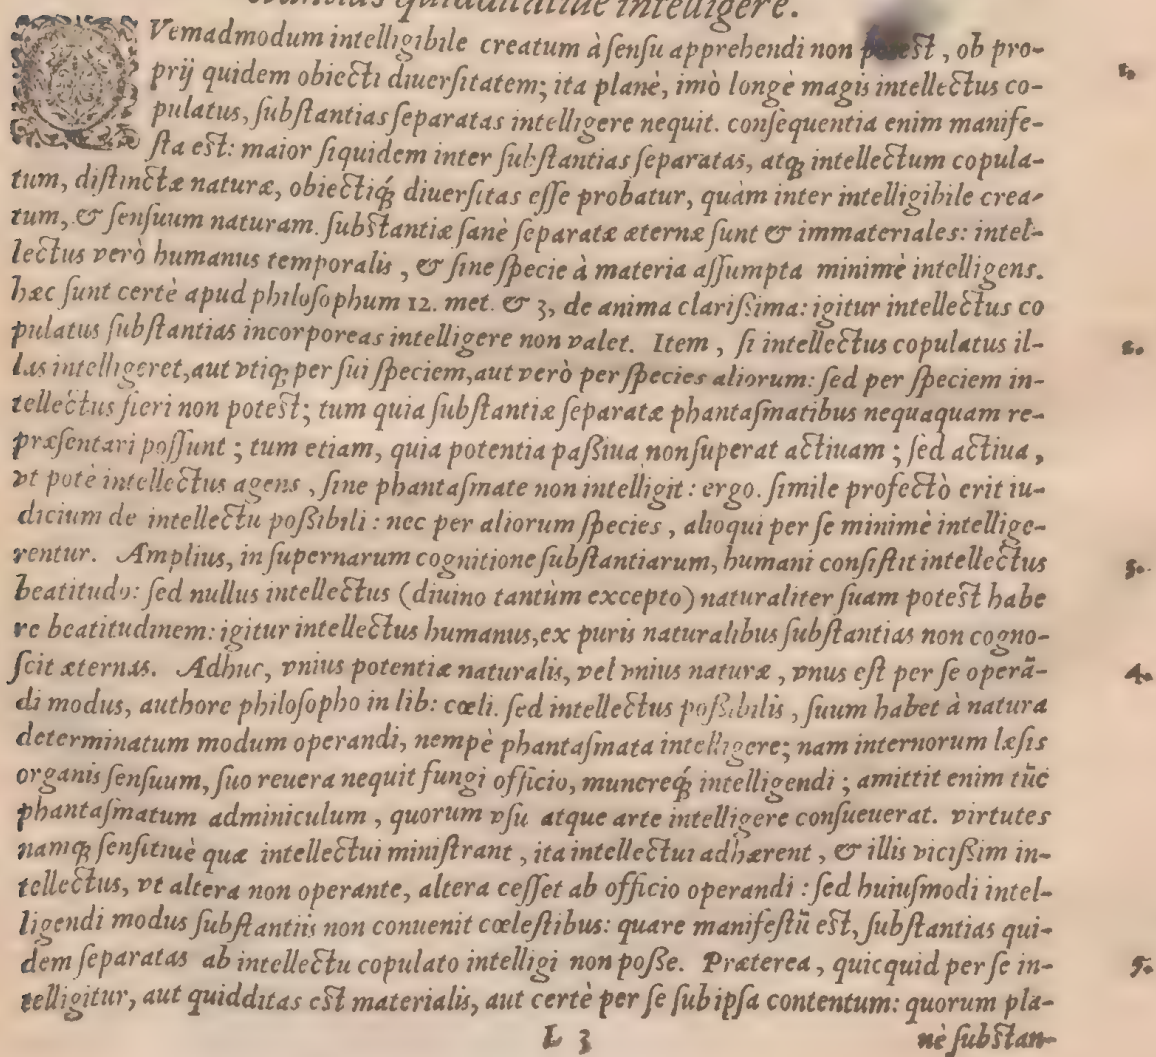 quidditatiue intelligere.
QVemadmodum intelligibile creatum à ſenſu apprehendi non poteſt, ob pro-
prij quidem obiecti diuerſitatem; ita planè, imò longè magis intellectus co-
pulatus, ſubſtantias ſeparatas intelligere nequit. conſequentia enim manife-
ſta eſt: maior ſiquidem inter ſubſtantias ſeparatas, atqꝫ intellectum copula-
tum, diſtinctæ naturæ, obiectiqꝫ diuerſitas eſſe probatur, quàm inter intelligibile crea-
tum, & ſenſuum naturam. ſubſtantiæ ſanè ſeparatæ æternæ ſunt & immateriales: intel-
lectus verò humanus temporalis, & ſine ſpecie à materia aſſumpta minimè intelligens.
hæc ſunt certè apud philoſophum 12. met. & 3, de anima clariſsima: igitur intellectus co
pulatus ſubſtantias incorporeas intelligere non valet. Item, ſi intellectus copulatus il-
las intelligeret, aut vtiqꝫ per ſui ſpeciem, aut verò per ſpecies aliorum: ſed per ſpeciem in-
tellectus fieri non poteſt; tum quia ſubſtantiæ ſeparatæ phantaſmatibus nequaquam re-
præſentari poſſunt; tum etiam, quia potentia paſsiua non ſuperat actiuam; ſed actiua,
vt potè intellectus agens, ſine phantaſmate non intelligit: ergo. ſimile profectò erit iu-
dicium de intellectu poſsibili: nec per aliorum ſpecies, alioqui per ſe minimè intellige-
rentur. Amplius, in ſupernarum cognitione ſubſtantiarum, humani conſiſtit intellectus
beatitudo: ſed nullus intellectus (diuino tantùm excepto) naturaliter ſuam poteſt habe
re beatitudinem: igitur intellectus humanus, ex puris naturalibus ſubſtantias non cogno-
ſcit æternas. Adhuc, vnius potentiæ naturalis, vel vnius naturæ, vnus eſt per ſe operā-
di modus, authore philoſopho in lib: cœli. ſed intellectus poſsibilis, ſuum habet à natura
determinatum modum operandi, nempè phantaſmata intelligere; nam internorum læſis
organis ſenſuum, ſuo reuera nequit fungi officio, munereqꝫ intelligendi; amittit enim tūc
phantaſmatum adminiculum, quorum vſu atque arte intelligere conſueuerat. virtutes
namqꝫ ſenſitiuè quæ intellectui miniſtrant, ita intellectui adhærent, & illis viciſsim in-
tellectus, vt altera non operante, altera ceſſet ab officio operandi: ſed huiuſmodi intel-
ligendi modus ſubſtantiis non conuenit cœleſtibus: quare manifeſtū eſt, ſubſtantias qui-
dem ſeparatas ab intellectu copulato intelligi non poſſe. Præterea, quicquid per ſe in-
telligitur, aut quidditas eſt materialis, aut certè per ſe ſub ipſa contentum: quorum pla-
L 3 nè ſubſtan-
1.
2.
3.
4.
5.